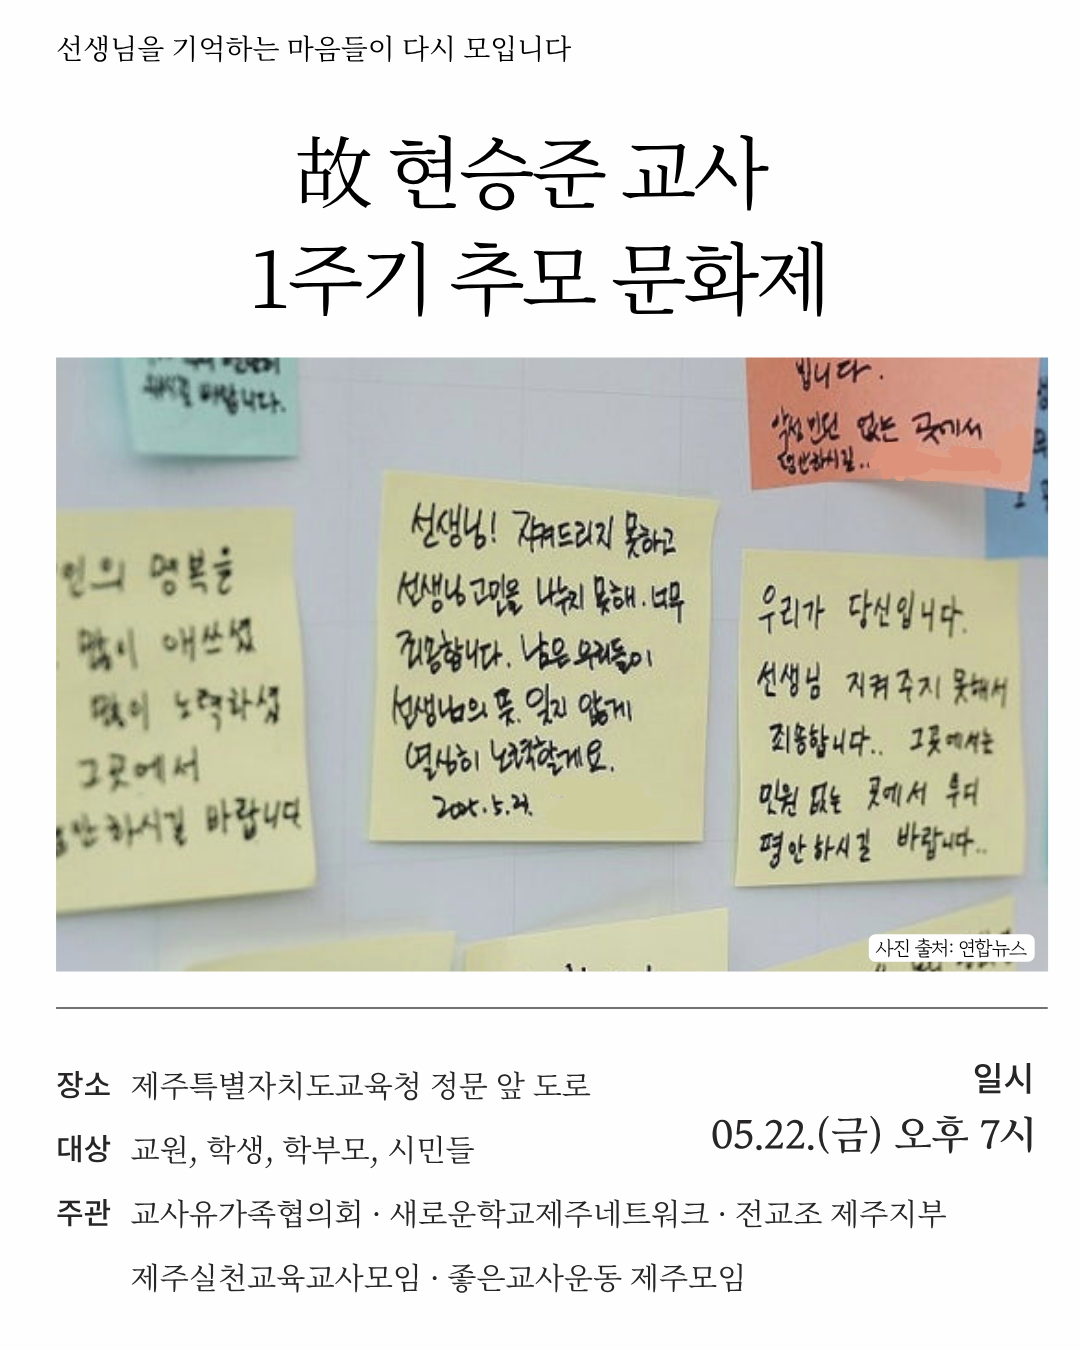 선생님을 기억하는 마음들이 다시 모입니다
故 현승준 교사
1주기 추모 문화제
바랍니다.
빕니다.
악성민원 없는 곳에서
평안하시길..
선생님! 지켜드리지 못하고
선생님 고민을 나누지 못해. 너무
죄송합니다. 남은 우리들이
선생님의 뜻 잊지 않게
열심히 노력할게요.
인의 명복을
많이 애쓰셨
많이 노력하셨
그곳에서
안하시길 바랍니다
우리가 당신입니다.
선생님 지켜주지 못해서
죄송합니다.. 그곳에서는
민원 없는 곳에서 부디
평안하시길 바랍니다..
사진 출처: 연합뉴스
장소 제주특별자치도교육청 정문 앞 도로
대상 교원, 학생, 학부모, 시민들
일시
05.22.(금) 오후 7시
주관 교사유가족협의회 · 새로운학교제주네트워크 · 전교조 제주지부
제주실천교육교사모임 · 좋은교사운동 제주모임